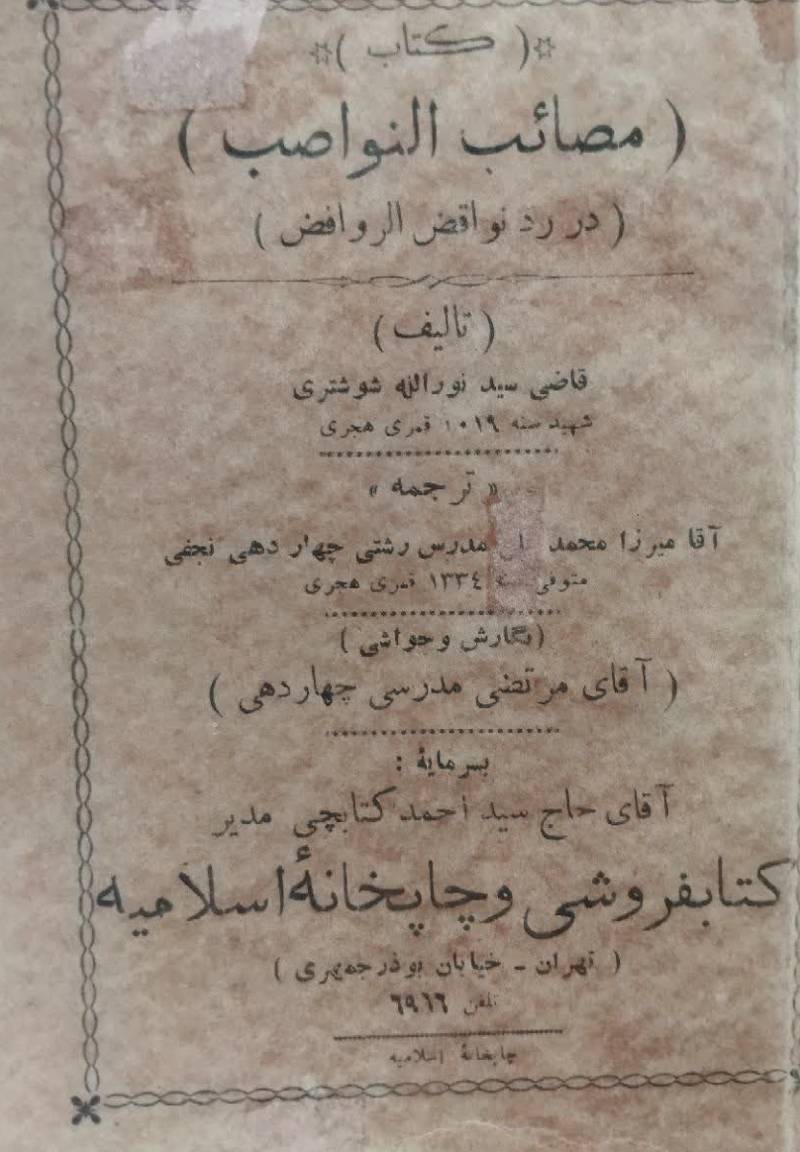 ( کتاب )
( مصائب النواصب )
( در رد نواقض الروافض )
( تالیف )
قاضی سید نورالله شوشتری
شهید سنه ۱۰۱۹ قمری هجری
« ترجمه »
آقا میرزا محمد مدرس رشتی چهاردهی نجفی
متوفی ۱۳۳٤ قمری هجری
( نگارش و حواشی )
( آقای مرتضی مدرسی چهاردهی )
بسرمایهٔ :
آقای حاج سید احمد کتابچی مدیر
کتابفروشی وچاپخانهٔ اسلامیه
( تهران - خیابان بوذرجمهری )
تلفن ٦٩٦٦
چاپخانهٔ اسلامیه